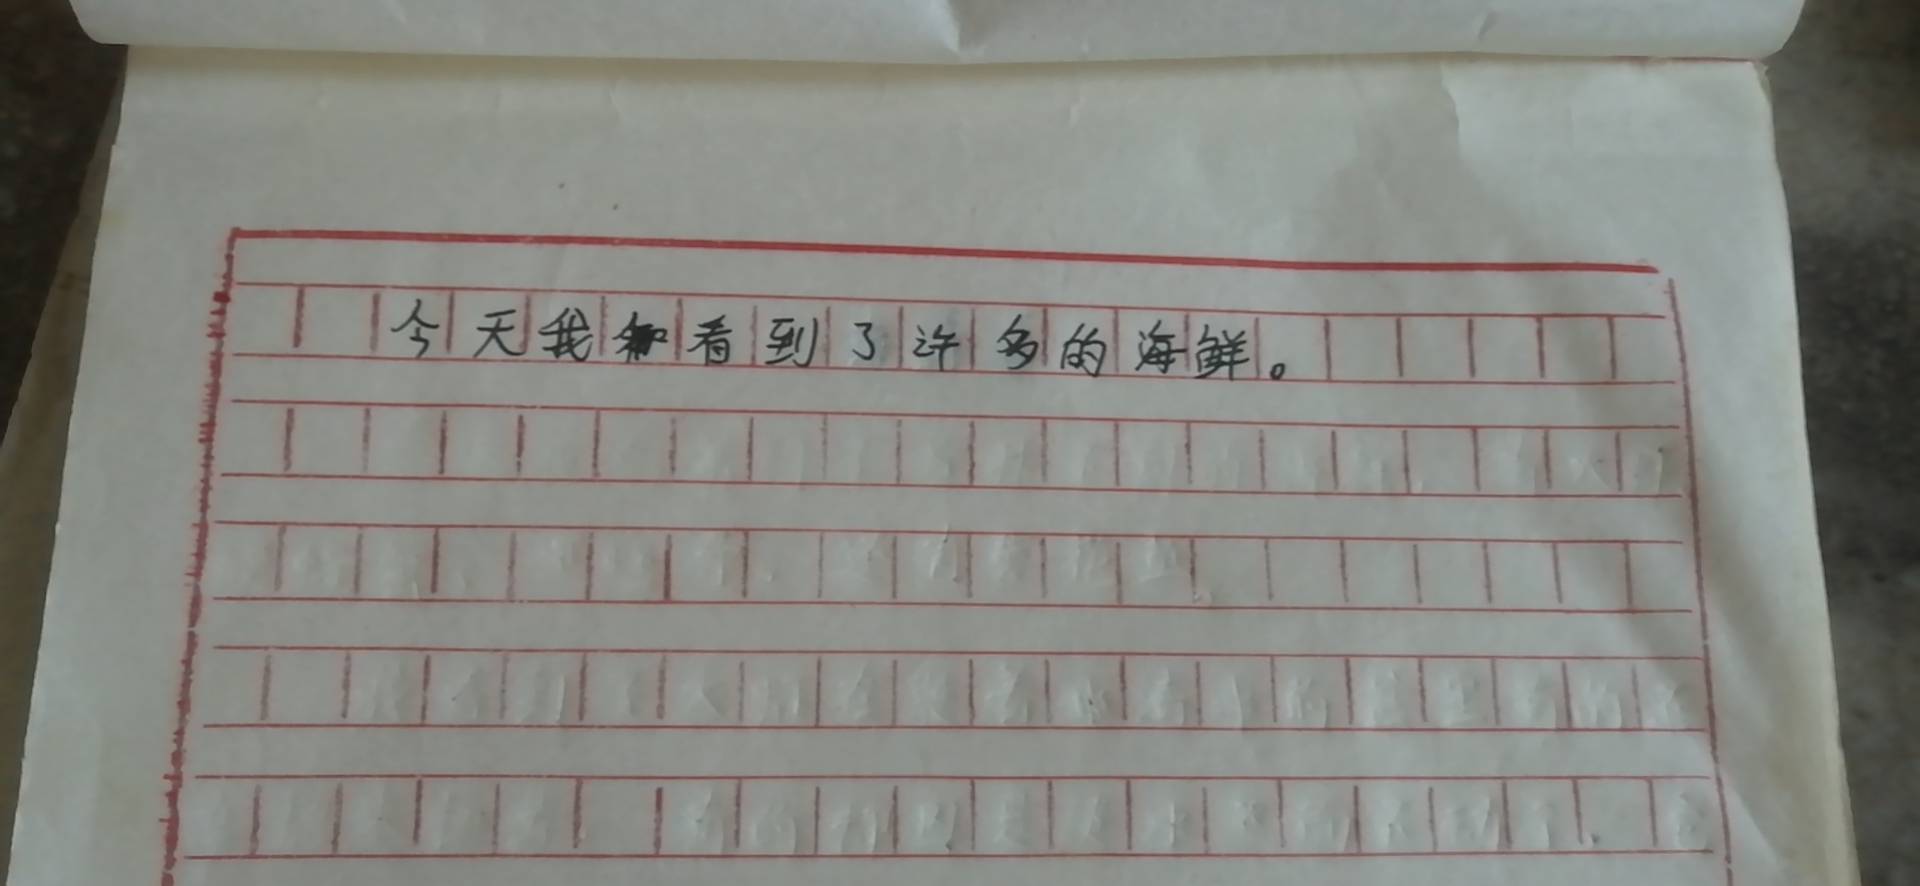 今天我看到了许多的海鲜。